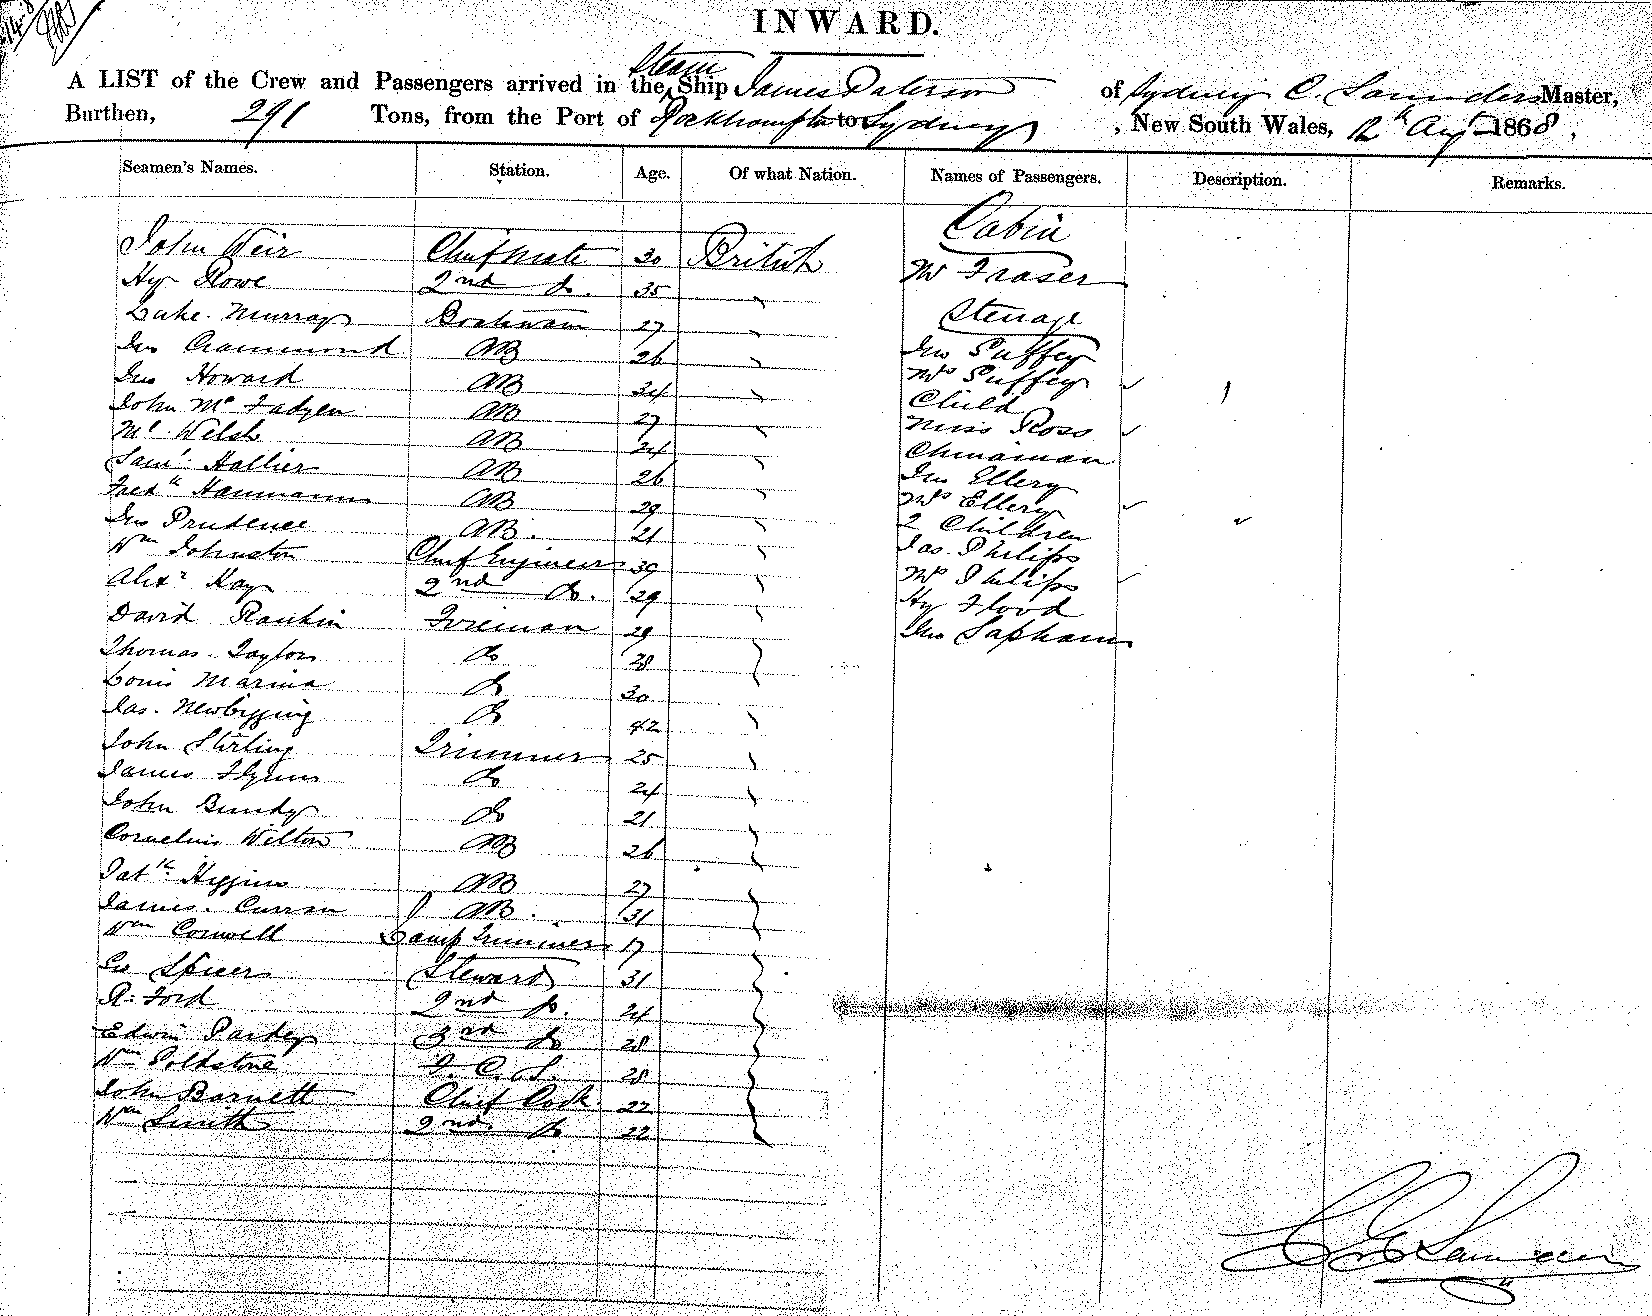 INWARD.
A LIST of the Crew and Passengers arrived in the Steam Ship James Paterson of Sydney C. Saunders Master,
Burthen, 291 Tons, from the Port of Rockhampton to Sydney, New South Wales, 12th Augt 1868.
Seamen's Names. Station. Age. Of what Nation. Names of Passengers. Description. Remarks.
Cabin
John Weir Chief Mate 30 British Mr Fraser
Hy Rowe 2nd Do. 35 "
Steerage
Luke Murray Boatswain 27 "
Jno Crammond AB 26 " Jno Puffey
Jno Howard AB 34 " Mrs Puffey
John McFadyen AB 27 " Child
Ml Welsh AB 24 " Miss Ross
Saml Hallier AB 26 " Chinaman
Fredk Hammann AB 29 " Jno Ellery
Jno Prudence AB. 21 " Mrs Ellery
2 Children
Wm Johnston Chief Engineer 39 " Jas Philips
Alexr Hay 2nd Do. 29 " Mrs Philips
Hy Flood
David Rankin Fireman 29 " Jno Lapham
Thomas Taylor Do 28
Louis Marina Do 30
Jas. Newbigging Do 42 "
John Stirling Trimmer 25 "
James Flynn Do 24 "
John Bundy Do 21
Cornelius Wilton AB 26
Patk Higgins AB 27
James Curran AB. 31
Wm Cornwell Lamp Trimmer 17
Geo Spicer Steward 31
R. Ford 2nd Do. 24
Edwin Parkes 3rd Do 28
Wm Poldstone F. C. S. 28
John Barnett Chief Cook 22
Wm Smith 2nd Do 22
C Saunders